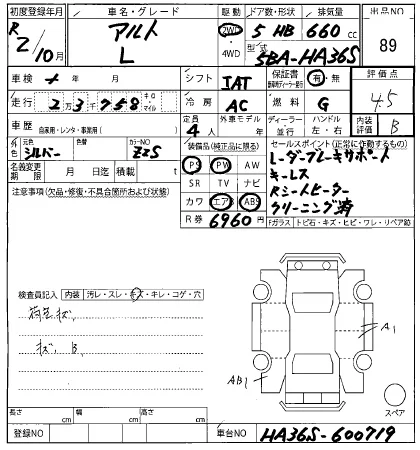 初度登録年月 車名・グレード 駆動 ドア数・形状 排気量 出品NO
R 2/10月 アルト L 2WD 4WD 5 HB 660 cc 89
型式 5BA-HA36S
車検 年 月 シフト IAT 保証書 有・無 評価点
走行 2 3 7 5 8 キロ・マイル 冷房 AC 燃料 G 4.5
車歴 自家用・レンタ・事業用( ) 定員 4人 外車モデル ディーラー 並行 ハンドル 左・右 内装評価 B
色 元色 シルバー カラーNO Z2S 装備品(純正品に限る) セールスポイント(正常に作動するもの)
名義変更期限 月 日迄 積載 t PS PW AW レーダーブレーキサポート
注意事項(欠品・修復・不具合箇所および状態) SR TV ナビ キーレス
カワ エアB ABS Rシートヒーター
R券 6960円 クリーニング済
Fガラス トビ石・キズ・ヒビ・ワレ・リペア跡
検査員記入 内装 汚レ・スレ・キズ・キレ・コゲ・穴
荷室キズ
キズ B
A1
AB1
スペア
長さ cm 幅 cm 高さ cm
登録NO 車台NO HA36S-600719